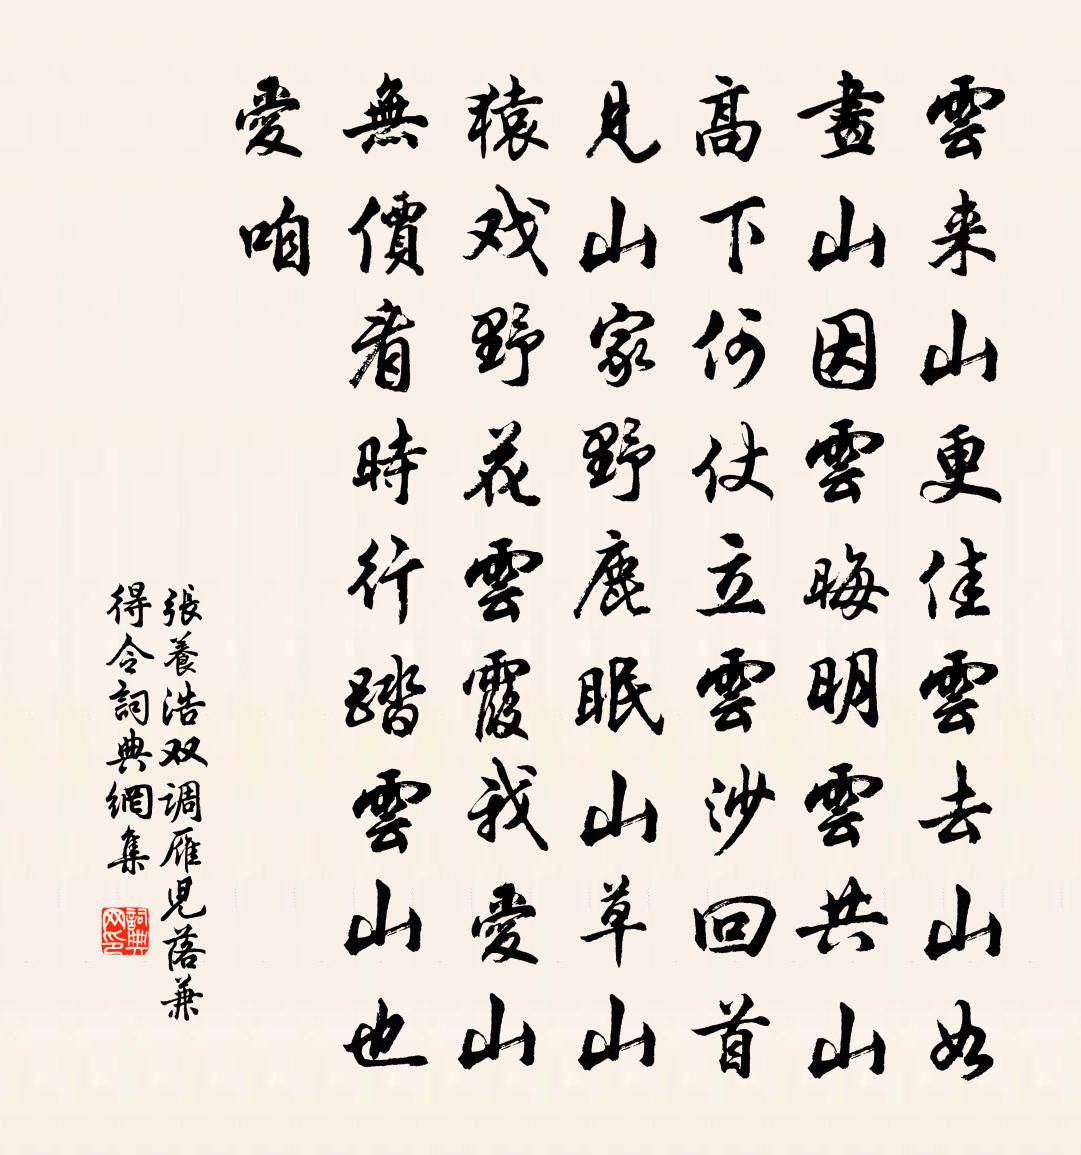 雲来山更佳雲去山如
畫山因雲晦明雲共山
髙下何仗立雲沙回首
見山家野鹿眠山草山
猿戏野花雲霞我愛山
無價看時行踏雲山也
愛咱
張養浩双调雁児落兼
得令詞典網集
詞典网印